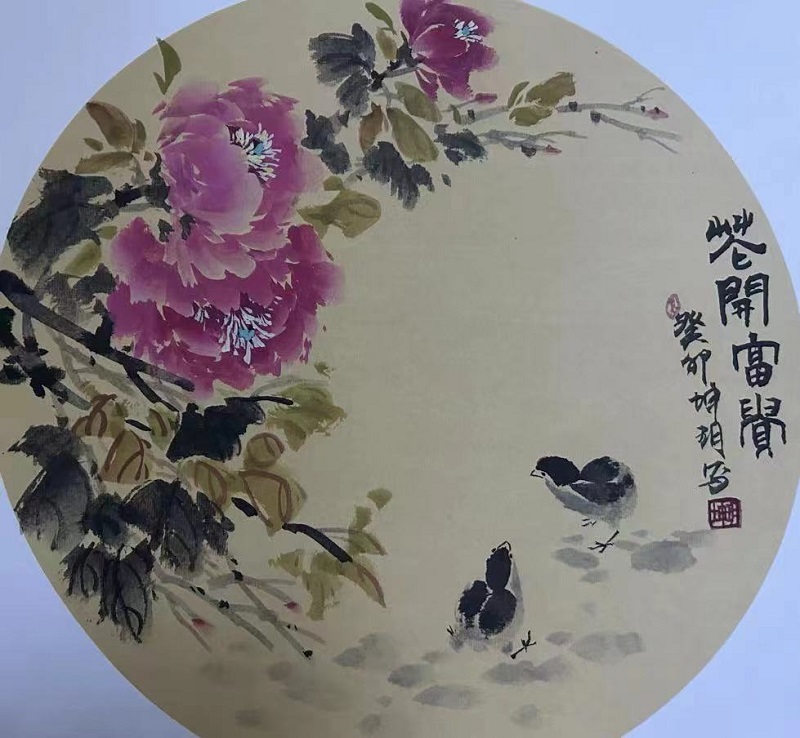 花開富貴
癸卯坤玥写